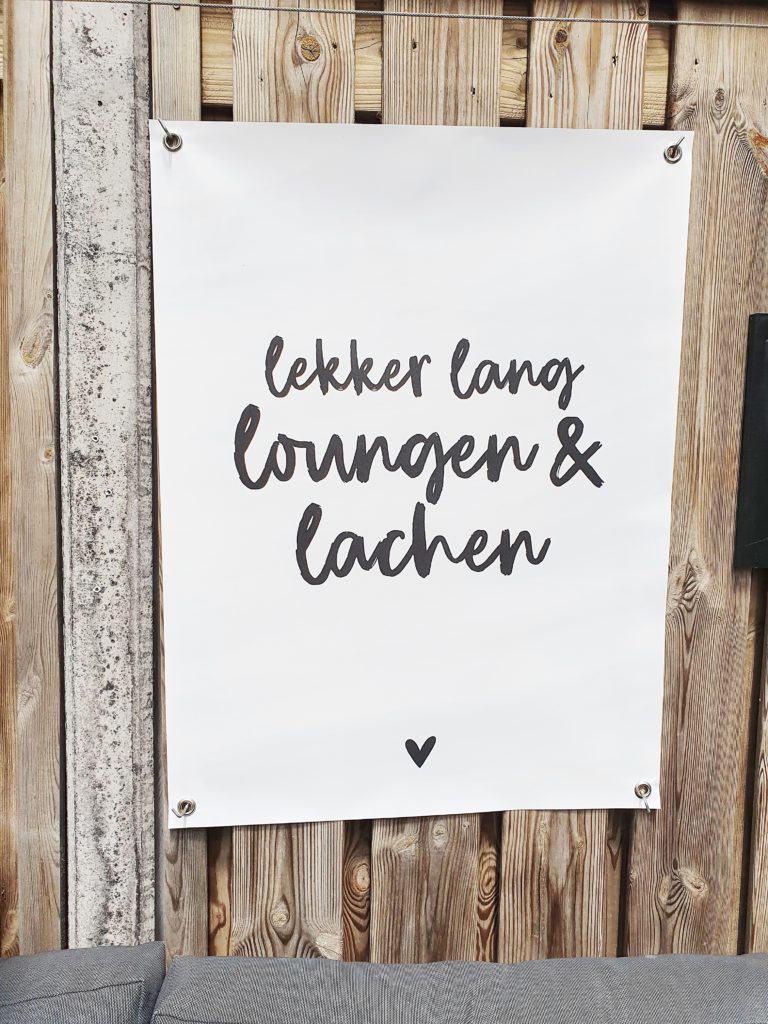 lekker lang
loungen &
lachen